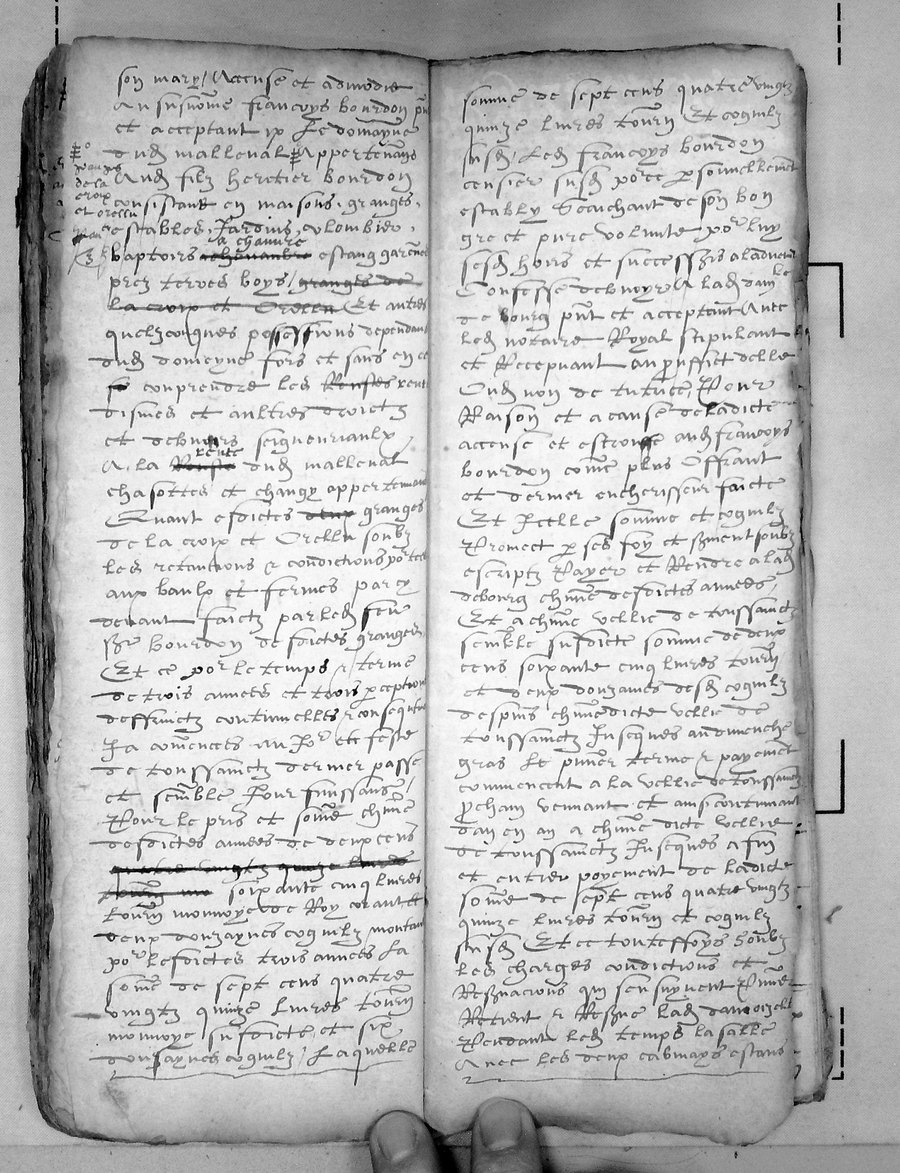 son mary / Accuse et admodie
Au susnōme francoys bourdon pn̄t
et acceptant ix Le domayne
dud mallenal ‡ Appertenans
Aud filz heretier bourdon
consistant en maisons, granges,
‡°
granges
de la
croix
et orellu
estables, Jardins, colombier,
a chauvre
baptoirs estang garenne
prez terres boys / granges de
la croix et Orellu Et autres
quelzconques possessions dependans
dud domeyne fors et sans en ce
conprendre les Rentes rent
dismes et aultres droictz
et debvoirs seigneuriaulx
rente
A la dud mallenal
chasottes et changy appertenant
Quant esdictes deux granges
de la croix et Orellu soubz
les retantions & condictions portees
aux baulx et fermes par cy
devant faictz par led feu
bourdon desdictes granges
Et ce por le temps & terme
de trois annees et trois perceptions
deffruictz continuelles & consequtives
Ja comences au Jor et feste
de toussainctz dernier passe
et semble Jour finissans /
Pour le pris et some chune
desdictes annees de deux cens
quatre vingtz quinze livres
soixante cinq livres
tourn monnoye de Roy corant et
deux douzaynes coquilz montant
por lesdictes trois annees La
some de sept cens quatre
vingtz quinze livres tourn
monnoye susdicte et six
dousaynes coquilz / Laquelle
somme de sept cens quatre vingtz
quinze livres tourn Et coquilz
susd / Led francoys bourdon
censier susd por ce personnellement
estably Scauchant de son bon
gre et pure volunte por luy
sesd hoirs et successeurs a ladvenir
Confesse debvoyr A lad dam le
de bourg pnt et acceptant Avec
led notaire Royal stipulant
et Recepvant au proffict delle
Oud non de tutrice, Pour
Raison et a cause de ladicte
accense et estrousse aud francoys
bourdon come plus Offrant
et dernier encherisseur faicte
Et Icelle somme et coquilz
Promect p ses foy et serment soubz
escriptz Payer et Rendre a lad
debourg chune desdictes annees
Et a chune vellie de toussainctz
semble susdicte somme de deux
cens soixante cinq livres tourn
et deux douzaines desd coquilz
despuis chune dicte vellie de
toussainctz Jusques au dimenche
gras Le pmier terme & payement
commencent a la vellie de toussainctz
prochain vennant et ainsi continuant
dan en an a chune dicte vellie
de toussainctz Jusques a fin
et entier poyement de ladicte
some de sept cens quatre vingtz
quinze livres tourn et coquilz
susd Et ce touteffoys soubz
les charges condictions et
Reservacions qui sensuyvent Pmier
Retient & Reserve lad damoizelle
Pendant led temps la salle
Avec les deux cabinays estans